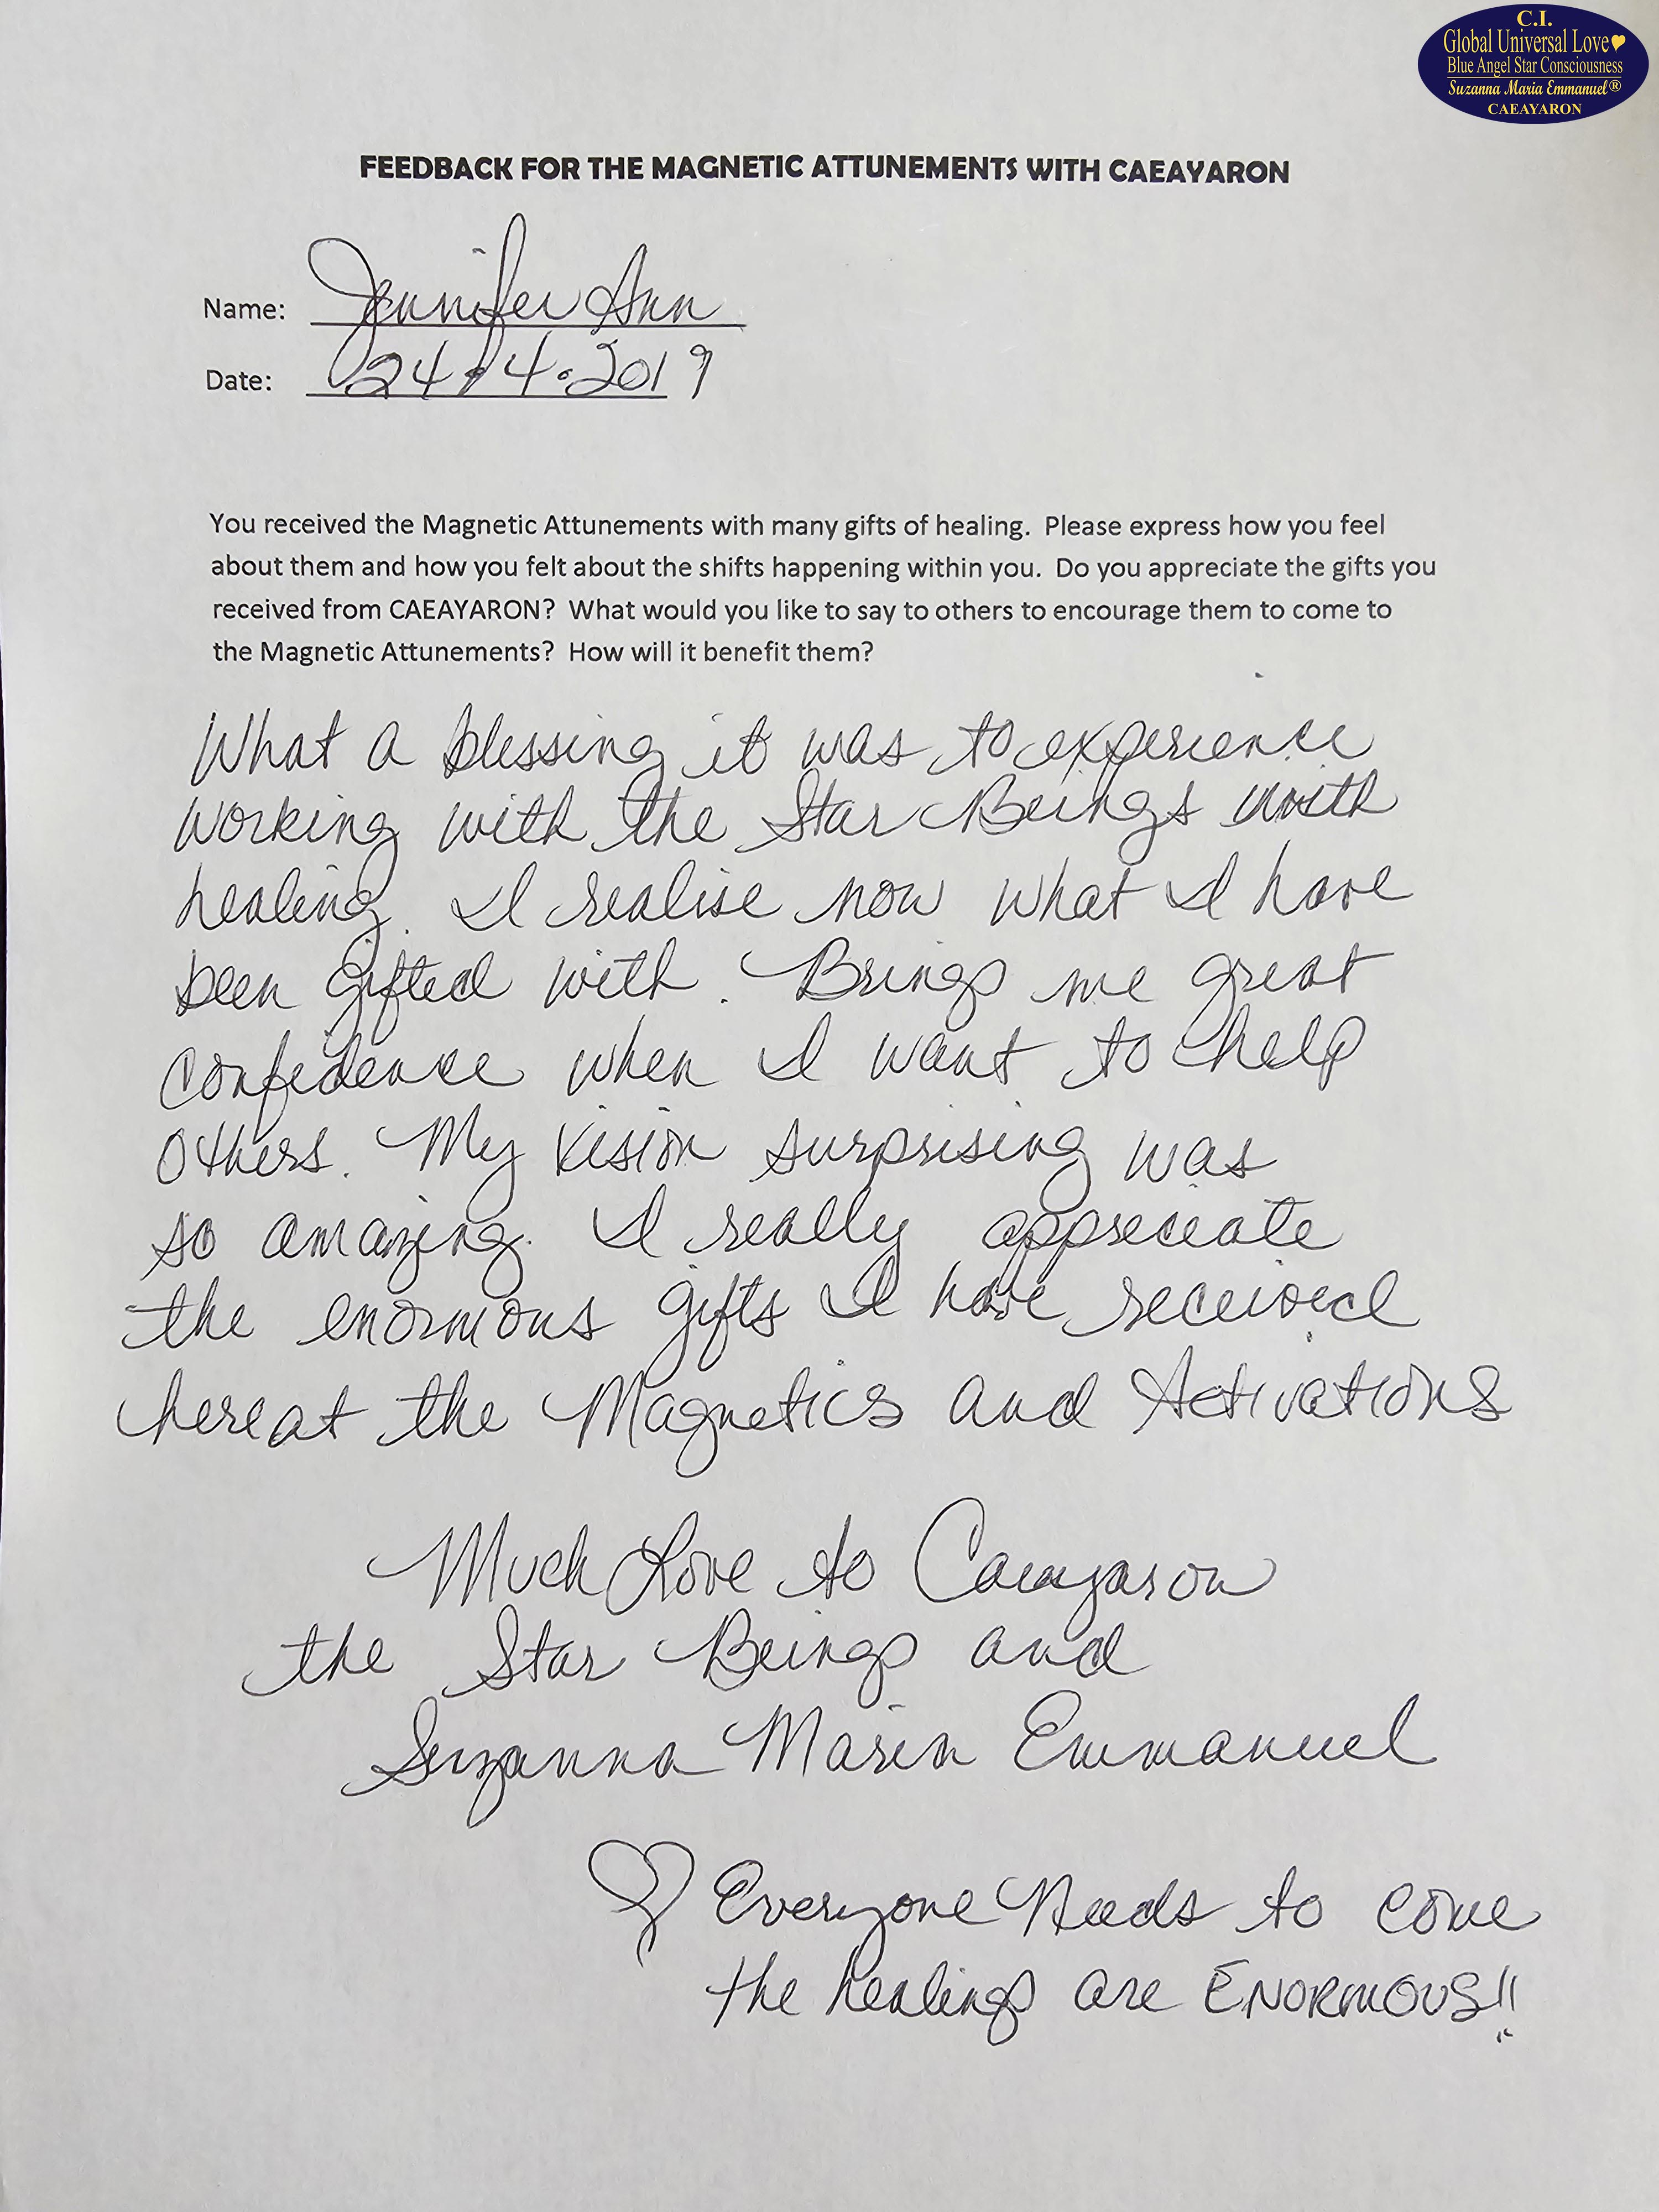 C.I.
Global Universal Love
Blue Angel Star Consciousness
Suzanna Maria Emmanuel®
CAEAYARON
FEEDBACK FOR THE MAGNETIC ATTUNEMENTS WITH CAEAYARON
Name: Jennifer Ann
Date: 24.4.2019
You received the Magnetic Attunements with many gifts of healing. Please express how you feel
about them and how you felt about the shifts happening within you. Do you appreciate the gifts you
received from CAEAYARON? What would you like to say to others to encourage them to come to
the Magnetic Attunements? How will it benefit them?
What a blessing it was to experience
working with the Star Beings with
healing. I realise now what I have
been gifted with. Brings me great
confidence when I want to help
others. My vision surprising was
so amazing. I really appreciate
the enormous gifts I have received
here at the Magnetics and Activations
Much Love to Caeayaron
the Star Beings and
Suzanna Maria Emmanuel
Everyone Needs to come
the healings are ENORMOUS!!